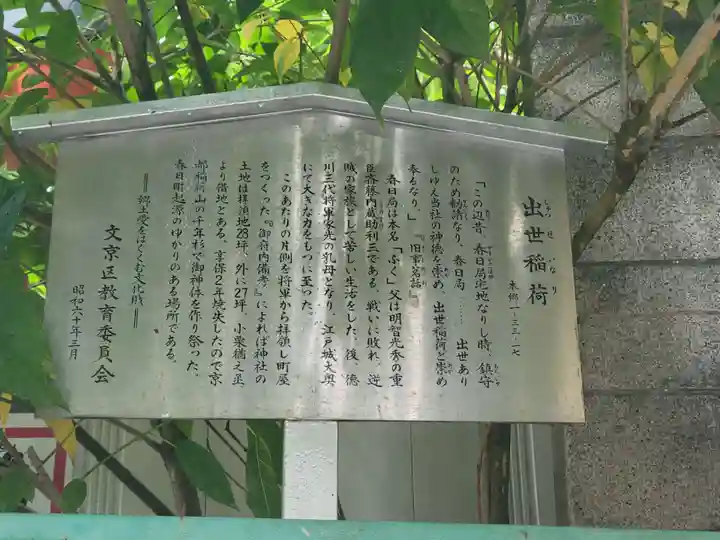 出世稲荷
しゅっせ いなり
本郷一-三三-一七
「この辺昔、春日局宅地なりし時、鎮守
のため勧請なり、春日局……出世あり
しゆえ当社の神徳を崇め、出世稲荷と崇め
奉るなり。」『旧事茗話』
春日局は本名「ふく」父は明智光秀の重
臣斎藤内蔵助利三である。戦いに敗れ、逆
賊の家族として苦しい生活をした。後、徳
川三代将軍家光の乳母となり、江戸城大奥
にて大きな力をもつに至った。
このあたりの片側を将軍から拝領し町屋
をつくった。『御府内備考』によれば神社の
土地は拝領地23坪、外に27坪、小栗猶之丞
より借地とある。享保2年焼失したので京
都稲荷山の千年杉で御神体を作り祭った。
春日町起源のゆかりのある場所である。
＝郷土愛をはぐくむ文化財＝
文京区教育委員会
昭和六十年三月